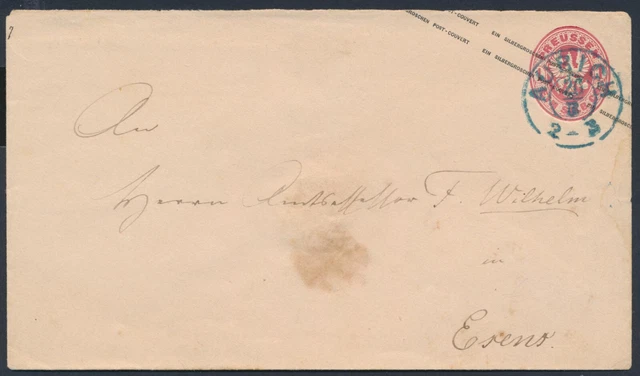 EIN SILBERGROSCHEN POST-COUVERT
GROSCHEN POST-COUVERT EIN SILBERGROSCHEN
PREUSSEN
AURICH
20
8
2-3
An
Herrn Amtsassessor F. Wilhelm
in
Esens.